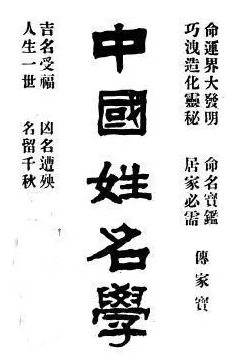 命運界大發明　命名寶鑑
巧洩造化靈秘　居家必需
傳家寶
中國姓名學
吉名受福　凶名遭殃
人生一世　名留千秋